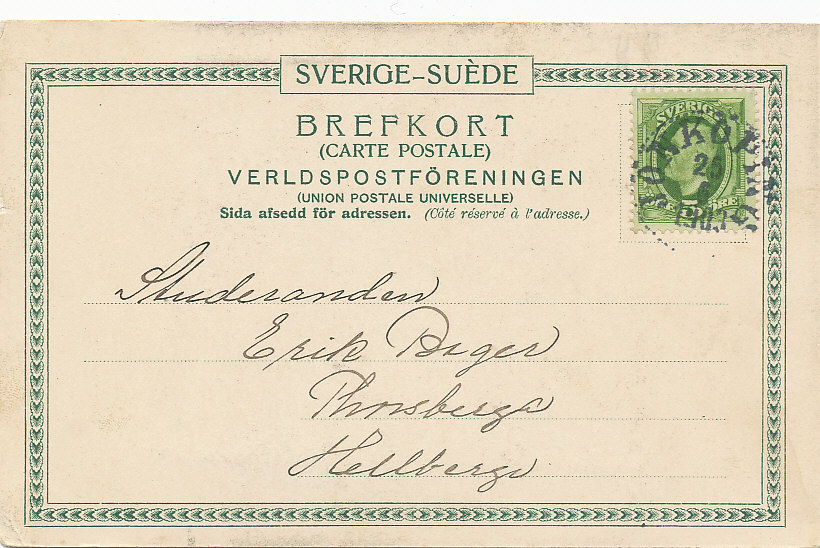 SVERIGE-SUÈDE
BREFKORT
(CARTE POSTALE)
VERLDSPOSTFÖRENINGEN
(UNION POSTALE UNIVERSELLE)
Sida afsedd för adressen. (Côté réservé à l'adresse.)
SVERIGE
26
ÖRE
Studeranden
Erik Boger
Hellberga